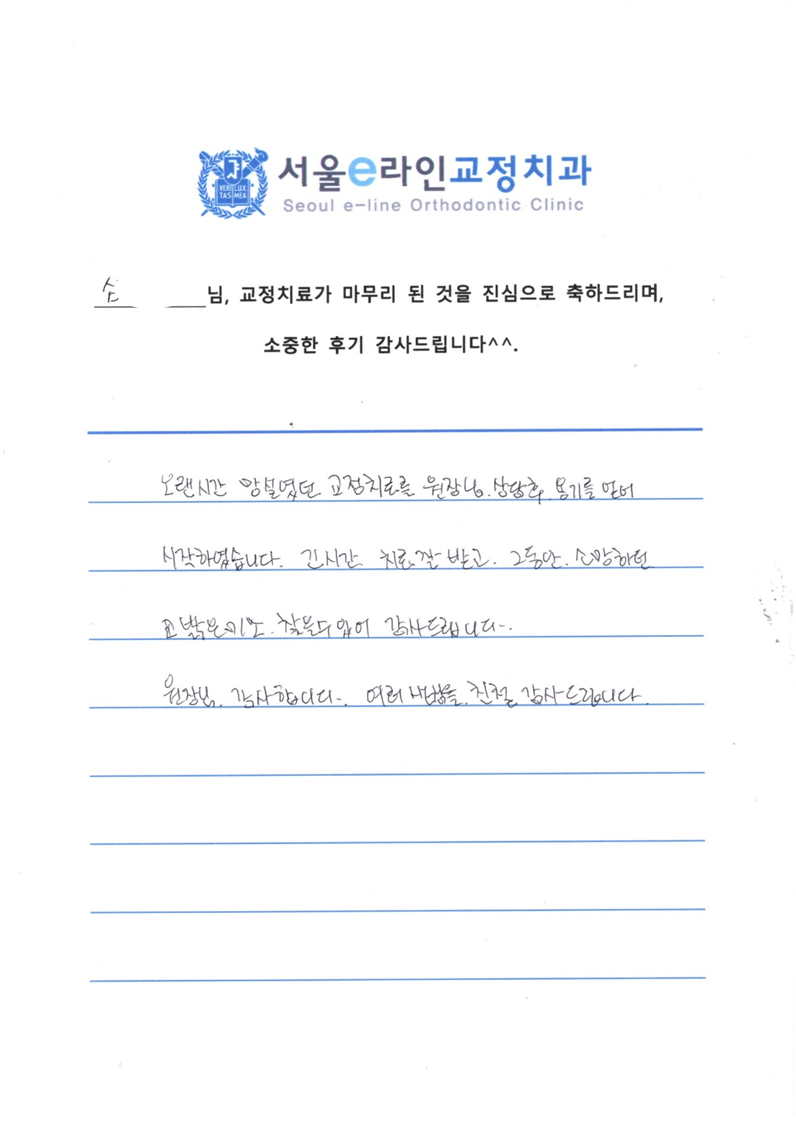 VERI LUX
TAS MEA
서울e라인교정치과
Seoul e-line Orthodontic Clinic
심 님, 교정치료가 마무리 된 것을 진심으로 축하드리며,
소중한 후기 감사드립니다^^.
오랜시간 망설였던 교정치료를 원장님. 상담후. 용기를 얻어
시작하였습니다. 긴시간. 치료.잘 받고. 그동안. 소망하던
밝은미소. 찾을수있어 감사드립니다~.
원장님. 감사합니다~. 여러 친절 감사드립니다.